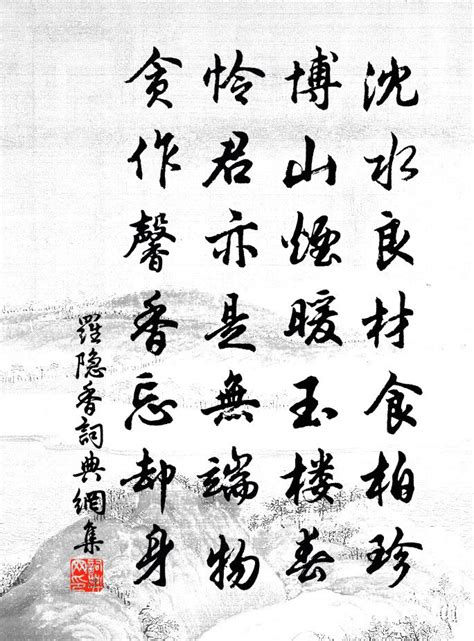 沈水良材食柏珍
博山煙暖玉楼春
怜君亦是無端物
贪作馨香忘却身
羅隐香詞典網集